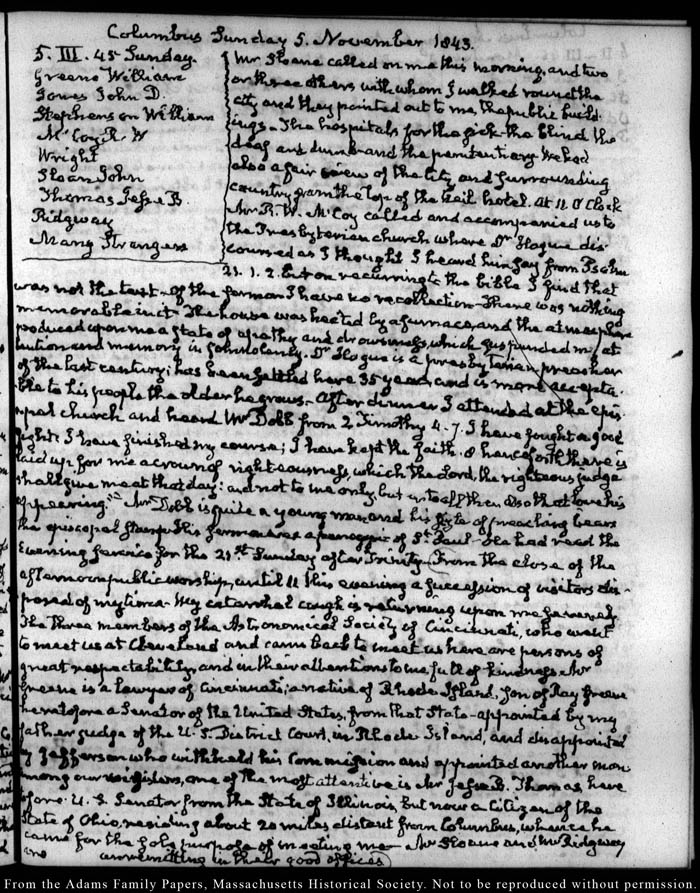 Columbus Sunday 5. November 1843.
5. III. 45 Sunday.
Greene William
Jones John D.
Stephenson William
McCoy R. W
Wright
Sloan John
Thomas Jesse B.
Ridgway
Many Strangers
Mr Sloane called on me this morning, and two
or three others with whom I walked round the
city and they pointed out to me, the public build-
ings - The hospitals for the sick - the blind the
deaf and dumb and the penitentiary. We had
also a fair view of the City and surrounding
country from the top of the Neil hotel. At 11 O'Clock
Mr R. W. McCoy called and accompanied us to
the Presbyterian church where Dr Hogue dis-
coursed as I thought I heard him say from Psalm
21. 1. 2. but on recurring to the bible I find that
was not the text - of the sermon I have no recollection - There was nothing
memorable in it - The house was heated by a furnace and the atmosphere
produced upon me a state of apathy and drowsiness, which suspended my at
tention and memory in somnolency. Dr Hogue is a presbyterian preacher
of the last century; has been settled here 35 years, and is more accepta-
ble to his people the older he grows. After dinner I attended at the epis-
copal church and heard Mr Dobb from 2 Timothy 4. 7. I have fought a good
fight: I have finished my course; I have kept the faith. 8 henceforth there is
laid up for me a crown of righteousness, which the Lord, the righteous judge
shall give me at that day: and not to me only, but unto all them also that love his
appearing." Mr Dobb is quite a young man, and his style of preaching bears
the episcopal stamp. His sermon was a panegyric of St Paul - He had read the
Evening service for the 21st Sunday after Trinity. From the close of the
afternoon public worship, until 11 this evening a succession of visitors dis-
posed of my time - My catarrhal cough is returning upon me severely
The three members of the Astronomical Society of Cincinnati, who went
to meet us at Cleveland and came back to meet us here are persons of
great respectability, and in their attentions to me full of kindness. Mr
Greene is a Lawyer of Cincinnati; a native of Rhode Island, son of Ray Greene
heretofore a Senator of the United States, from that State - appointed by my
father judge of the U. S. District Court, in Rhode Island, and disappointed
by Jefferson who withheld his Commission and appointed another man
Among our visitors, one of the most attentive is Mr Jesse B. Thomas, here
tofore U. S. Senator from the State of Illinois, but now a Citizen of the
State of Ohio, residing about 20 miles distant from Columbus, whence he
came for the sole purpose of meeting me - Mr Sloane and Mr Ridgway
are unremitting in their good offices
From the Adams Family Papers, Massachusetts Historical Society. Not to be reproduced without permission.